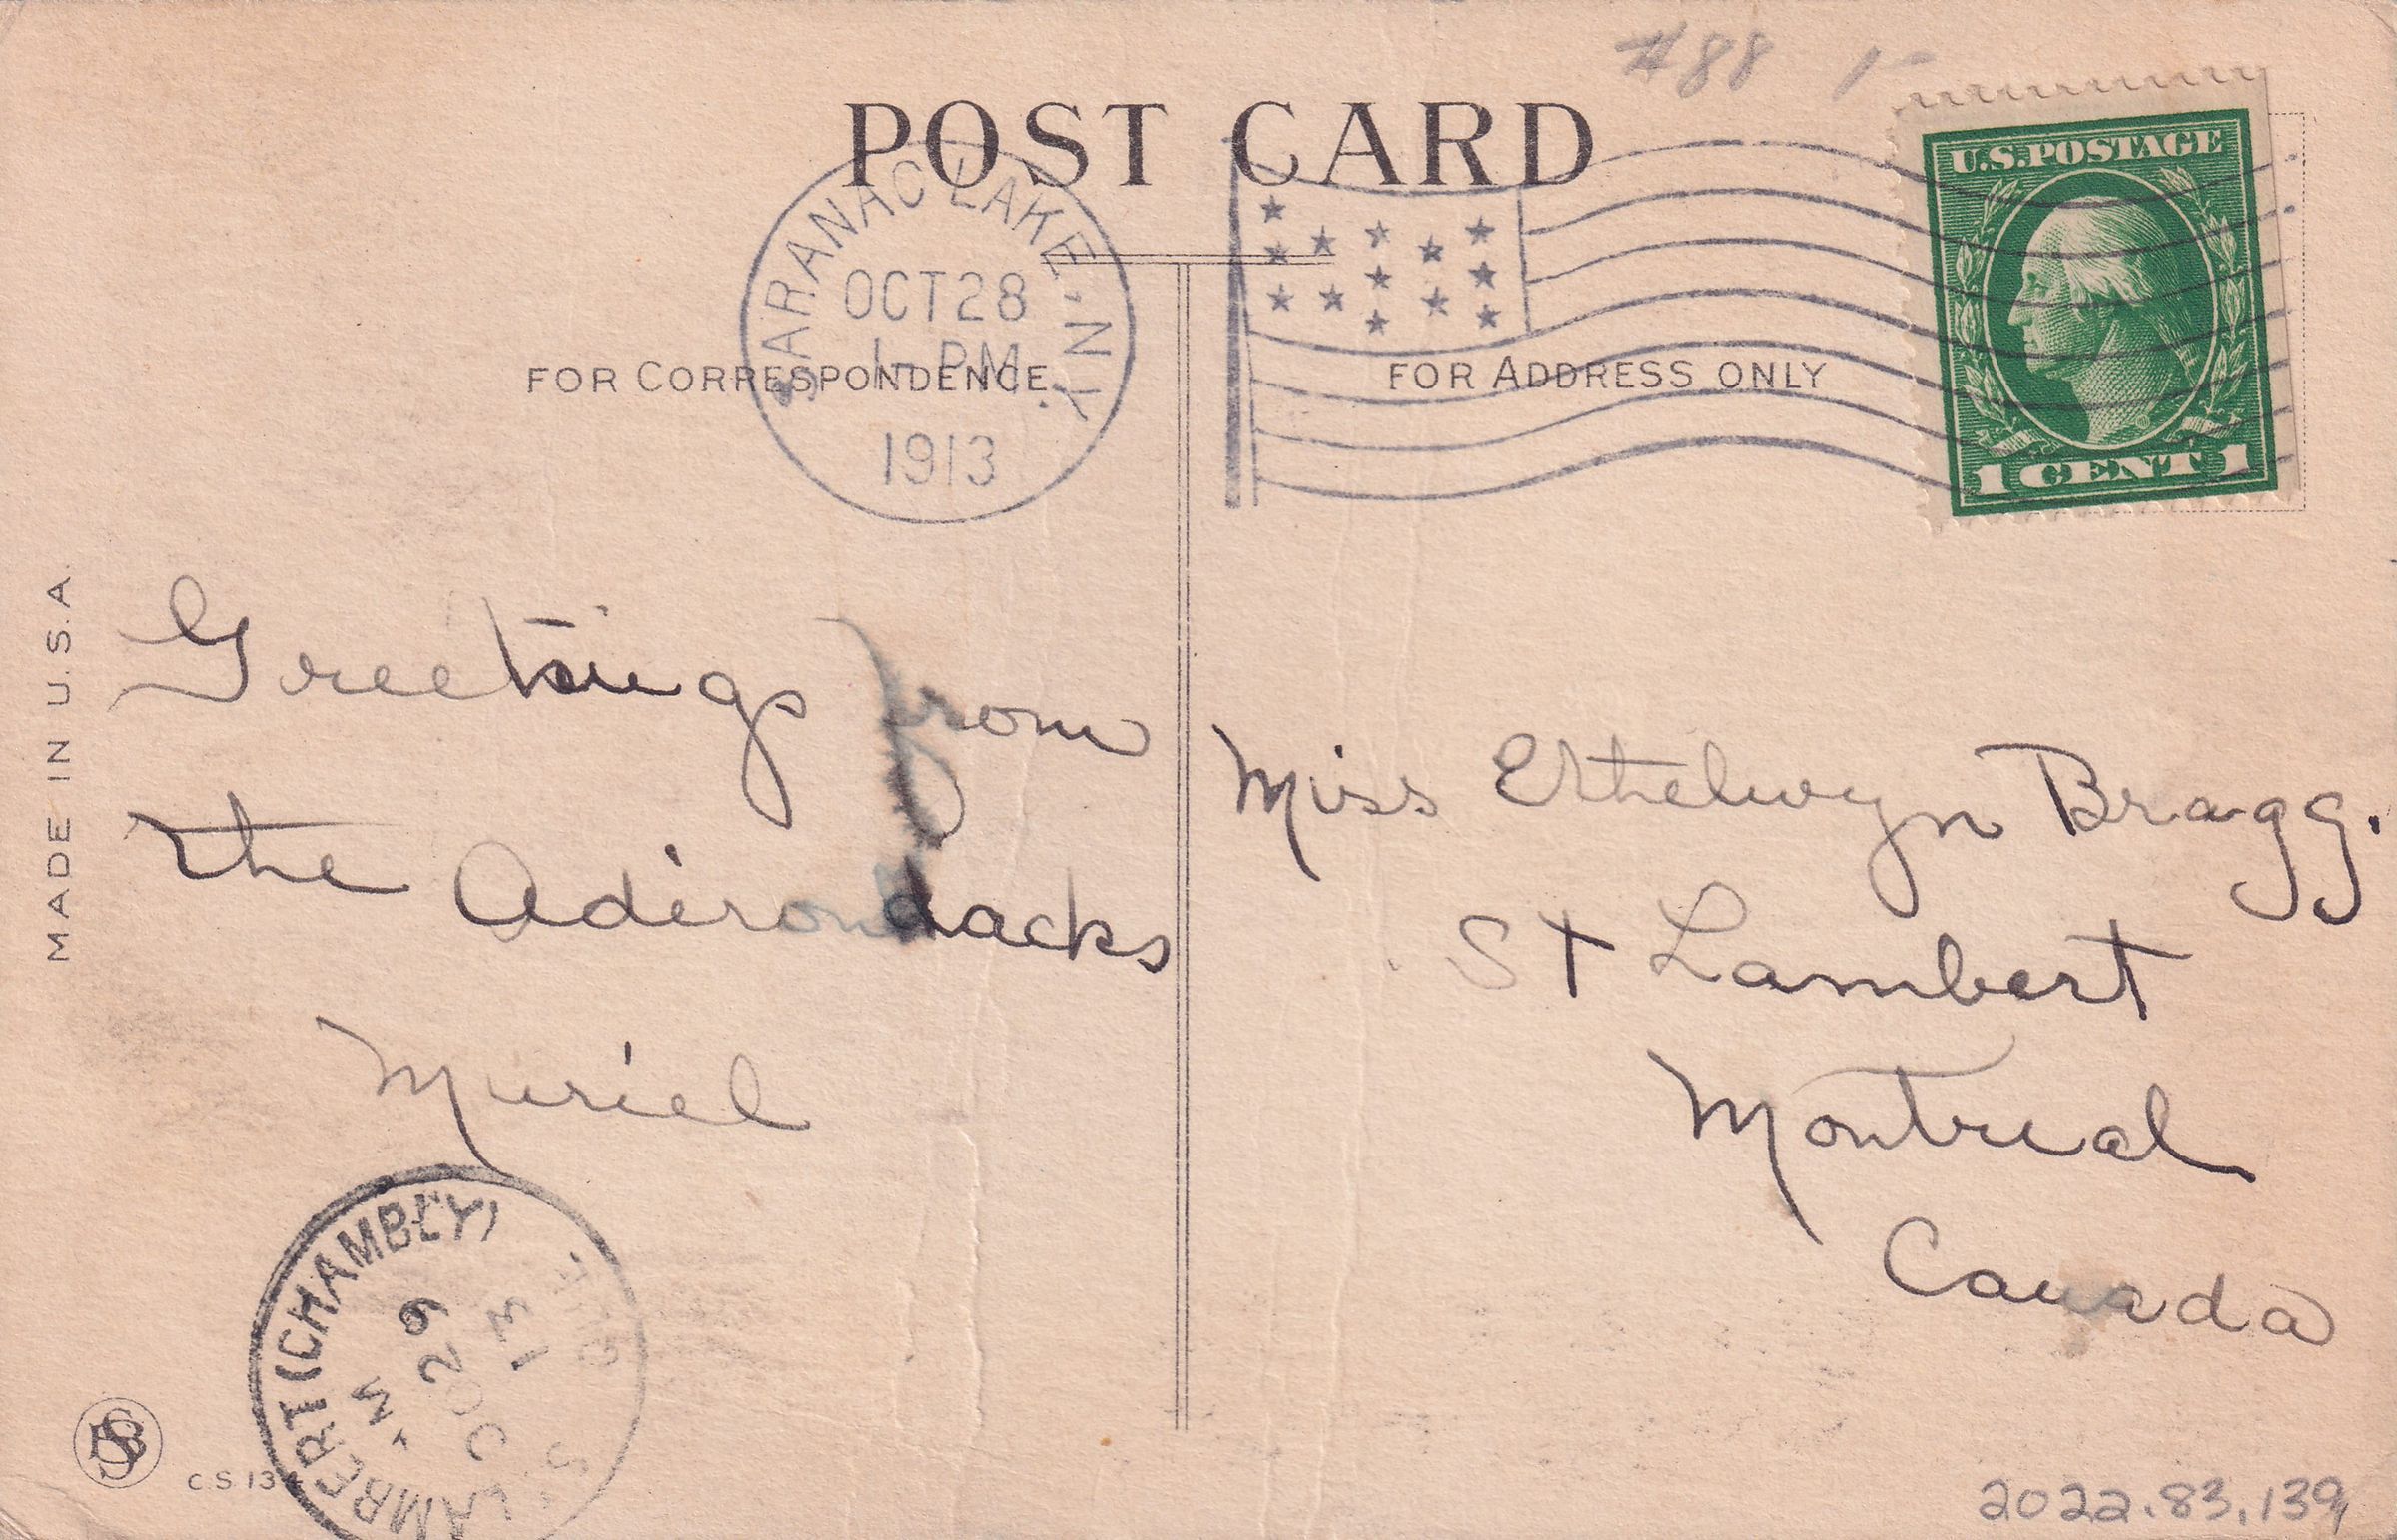 #88 1-
POST CARD
U.S. POSTAGE
1 CENT 1
SARANAC LAKE, N.Y.
OCT 28
1- PM
1913
FOR CORRESPONDENCE
FOR ADDRESS ONLY
MADE IN U.S.A.
Greetings from
the Adirondacks
Muriel
Miss Ethelwyn Bragg.
St Lambert
Montreal
Canada
ST LAMBERT (CHAMBLY)
QUE
M
OC 29
13
C.S. 13
2022.83.139